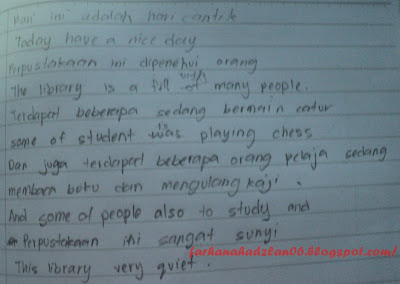 Hari ini adalah hari cantik
Today have a nice day
Perpustakaan ini dipenehui orang
The library is a full with of many people.
Terdapat beberapa sedang bermain catur
some of student is was playing chess
Dan juga terdapat beberapa orang pelaja sedang
membaca buku dan mengulang kaji.
And some of people also to study and
Perpustakaan ini sangat sunyi
This library very quiet.
farhanahadzlan06.blogspot.com/